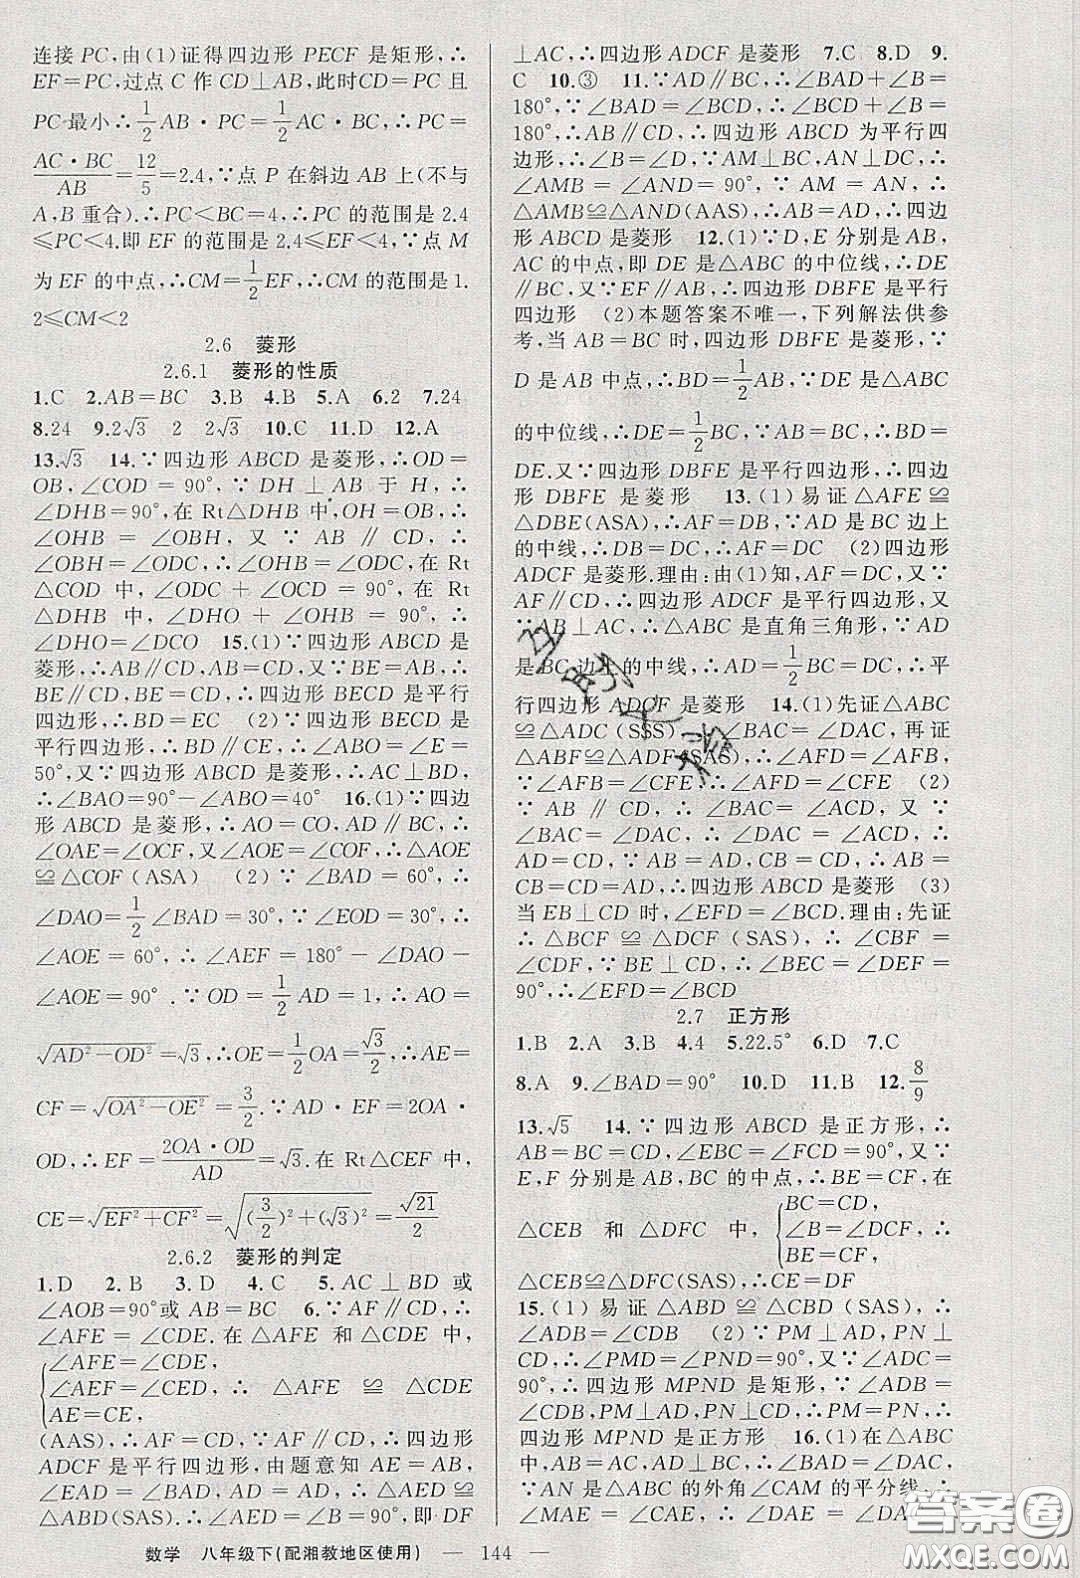 连接 PC,由(1)证得四边形 PECF 是矩形,∴
EF=PC,过点 C 作 CD⊥AB,此时CD=PC 且
PC 最小∴1/2 AB·PC=1/2 AC·BC,∴PC=
AC·BC/AB=12/5=2.4,∵点 P 在斜边 AB 上(不与
A,B 重合).∴PC<BC=4,∴PC 的范围是 2.4
≤PC<4.即 EF 的范围是 2.4≤EF<4,∵点 M
为 EF 的中点,∴CM=1/2 EF,∴CM 的范围是 1.
2≤CM<2
2.6 菱形
2.6.1 菱形的性质
1.C 2.AB=BC 3.B 4.B 5.A 6.2 7.24
8.24 9.2√3 2 2√3 10.C 11.D 12.A
13.√3 14.∵四边形 ABCD 是菱形,∴OD=
OB,∠COD=90°,∵DH⊥AB 于 H,∴
∠DHB=90°,在 Rt△DHB 中,OH=OB,∴
∠OHB=∠OBH,又∵AB∥CD,∴
∠OBH=∠ODC=∠OHB,在 Rt
△COD 中,∠ODC+∠OCD=90°,在 Rt
△DHB 中,∠DHO+∠OHB=90°,∴
∠DHO=∠DCO 15.(1)∵四边形 ABCD 是
菱形,∴AB∥CD,AB=CD,又∵BE=AB,∴
BE∥CD,BE=CD,∴四边形 BECD 是平行四
边形,∴BD=EC (2)∵四边形 BECD 是
平行四边形,∴BD∥CE,∴∠ABO=∠E=
50°,又∵四边形 ABCD 是菱形,∴AC⊥BD,
∴∠BAO=90°-∠ABO=40° 16.(1)∵四边
形 ABCD 是菱形,∴AO=CO,AD∥BC,∴
∠OAE=∠OCF,又∠AOE=∠COF,∴△AOE
≌△COF(ASA) (2)∵∠BAD=60°,∴
∠DAO=1/2∠BAD=30°,∵∠EOD=30°,∴
∠AOE=60°,∴∠AEF=180°-∠DAO-
∠AOE=90°.∵OD=1/2 AD=1,∴AO=
√(AD²-OD²)=√3,∴OE=1/2 OA=√3/2,∴AE=
CF=√(OA²-OE²)=3/2.∵AD·EF=2OA·
OD,∴EF=2OA·OD/AD=√3.在 Rt△CEF 中,
CE=√(EF²+CF²)=√((3/2)²+(√3)²)=√21/2
2.6.2 菱形的判定
1.D 2.B 3.D 4.C 5.AC⊥BD 或
∠AOB=90°或 AB=BC 6.∵AF∥CD,∴
∠AFE=∠CDE.在△AFE 和△CDE 中,
∠AFE=∠CDE,
∠AEF=∠CED,∴△AFE≌△CDE
AE=CE,
(AAS),∴AF=CD,∵AF∥CD,∴四边形
ADCF 是平行四边形,由题意知 AE=AB,
∠EAD=∠BAD,AD=AD,∴△AED≌
△ABD(SAS).∴∠AED=∠B=90°,即 DF
⊥AC,∴四边形 ADCF 是菱形 7.C 8.D 9.
C 10.③ 11.∵AD∥BC,∴∠BAD+∠B=
180°,∵∠BAD=∠BCD,∴∠BCD+∠B=
180°,∴AB∥CD,∴四边形 ABCD 为平行四
边形,∴∠B=∠D,∵AM⊥BC,AN⊥DC,∴
∠AMB=∠AND=90°,∵AM=AN,∴
△AMB≌△AND(AAS),∴AB=AD,∴四边
形 ABCD 是菱形 12.(1)∵D,E 分别是 AB,
AC 的中点,即 DE 是△ABC 的中位线,∴DE
∥BC,又∵EF∥AB,∴四边形 DBFE 是平行
四边形 (2)本题答案不唯一,下列解法供参
考,当 AB=BC 时,四边形 DBFE 是菱形,∵
D 是 AB 中点,∴BD=1/2 AB,∵DE 是△ABC
的中位线,∴DE=1/2 BC,∵AB=BC,∴BD=
DE.又∵四边形 DBFE 是平行四边形,∴四边
形 DBFE 是菱形 13.(1)易证△AFE≌
△DBE(ASA),∴AF=DB,∵AD 是 BC 边上
的中线,∴DB=DC,∴AF=DC (2)四边形
ADCF 是菱形.理由:由(1)知,AF=DC,又∵
AF∥CD,∴四边形 ADCF 是平行四边形,又
∵AB⊥AC,∴△ABC 是直角三角形,∵AD
是 BC 边上的中线,∴AD=1/2 BC=DC,∴平
行四边形 ADCF 是菱形 14.(1)先证△ABC
≌△ADC(SSS),∴∠BAC=∠DAC,再证
△ABF≌△ADF(SAS),∴∠AFD=∠AFB,
∵∠AFB=∠CFE,∴∠AFD=∠CFE (2)
∵AB∥CD,∴∠BAC=∠ACD,又∵
∠BAC=∠DAC,∴∠DAC=∠ACD,∴
AD=CD,∵AB=AD,CB=CD,∴AB=
CB=CD=AD,∴四边形 ABCD 是菱形 (3)
当 EB⊥CD 时,∠EFD=∠BCD.理由:先证
∴△BCF≌△DCF(SAS),∴∠CBF=
∠CDF,∵BE⊥CD,∴∠BEC=∠DEF=
90°,∴∠EFD=∠BCD
2.7 正方形
1.B 2.A 3.B 4.4 5.22.5° 6.D 7.C
8.A 9.∠BAD=90° 10.D 11.B 12.8/9
13.√5 14.∵四边形 ABCD 是正方形,∴
AB=BC=CD,∠EBC=∠FCD=90°,又∵
E,F 分别是 AB,BC 的中点,∴BE=CF,在
△CEB 和△DFC 中,
BC=CD,
∠B=∠DCF,∴
BE=CF,
△CEB≌△DFC(SAS),∴CE=DF
15.(1)易证△ABD≌△CBD(SAS),∴
∠ADB=∠CDB (2)∵PM⊥AD,PN⊥
CD,∴∠PMD=∠PND=90°,又∵∠ADC=
90°,∴四边形 MPND 是矩形,∵∠ADB=
∠CDB,PM⊥AD,PN⊥CD,∴PM=PN,∴
四边形 MPND 是正方形 16.(1)在△ABC
中,AB=AC,AD⊥BC,∴∠BAD=∠DAC,
∵AN 是△ABC 的外角∠CAM 的平分线,∴
∠MAE=∠CAE,∴∠DAE=∠DAC+
数学 八年级下(配湘教地区使用) — 144 —
答案圈
MXQE.COM